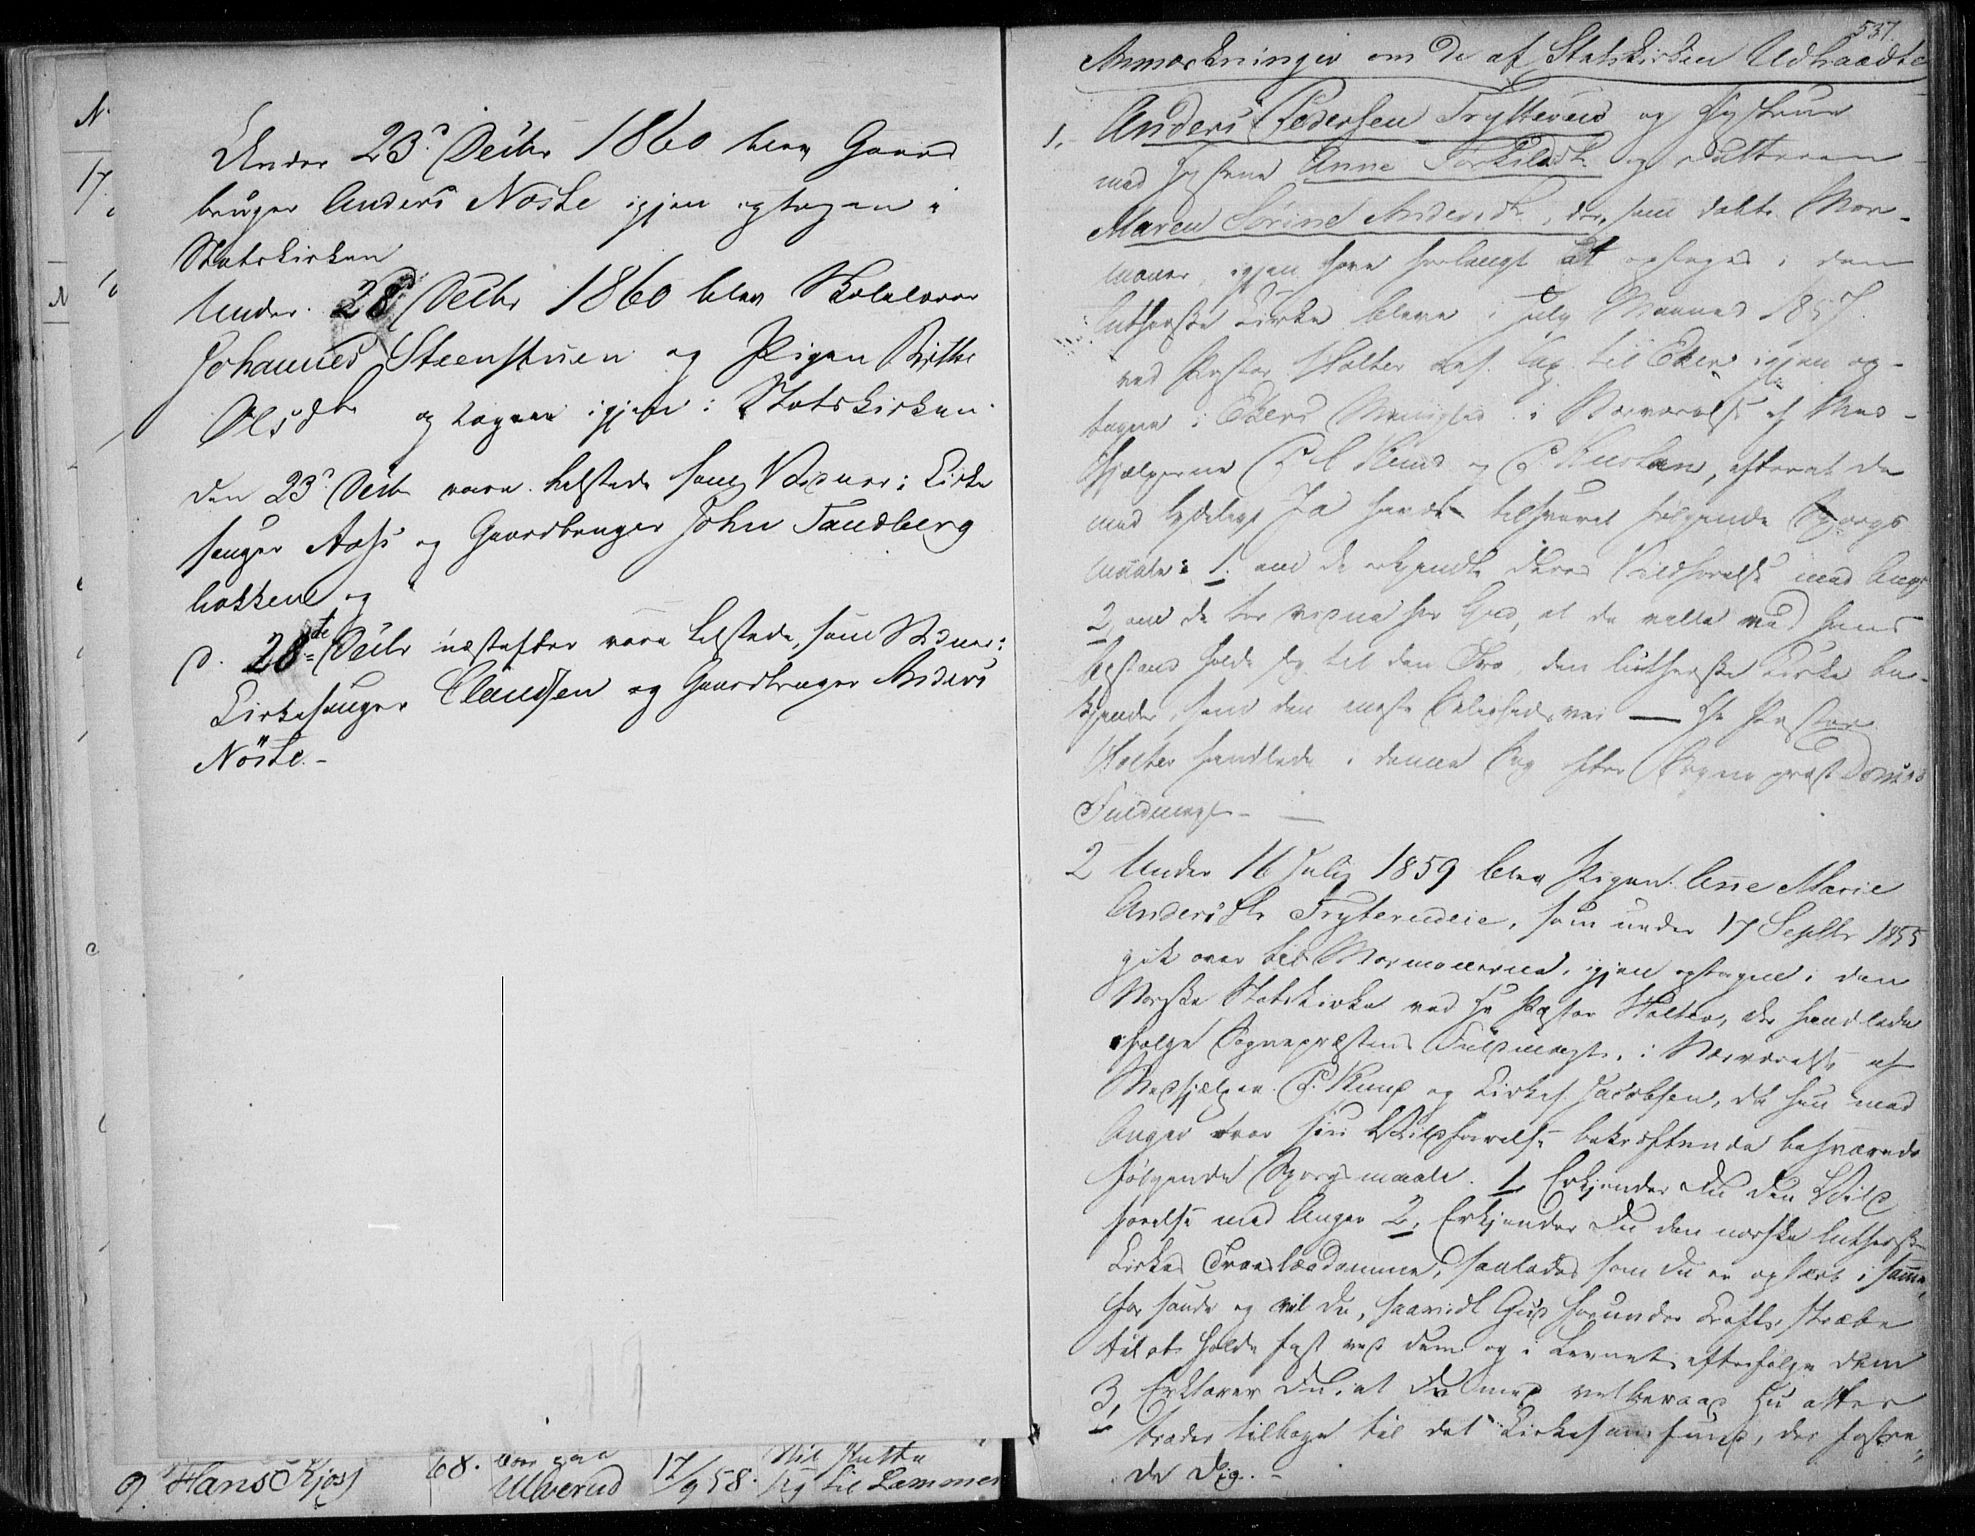 Under 23de Decbr 1860 blev Gaard
bruger Anders Nøste igjen optagen i
Statskirken
Under 28de Decbr 1860 blev Skolelærer
Johannes Steenstuen og Pigen Birthe
Olsdtr optagne igjen i Statskirken.
Den 23de Decbr vare tilstede som Vidner: Kirke
sanger Aass og Gaardbruger John Sandberg
bakken og
d. 28de Decbr næstefter vare tilstede, som Vidner:
Kirkesanger Claussen og Gaardbruger Anders
Nøste.-
9. Hans Kjøs 68. Ulverud 17/9 58. Vil slutte
sig til Lammers
537.
Anmærkninger om de af Statskirken Udtraadte
1, Anders Pedersen Trytterud og Hustru
med Hustru Anne Torkildsdtr og Datteren
Maren Sørine Andersdtr, der, som døbte Mor-
moner igjen have forlangt at optages i den
lutherske Kirke bleve i July Maaned 1857
ved Pastor Holter til Eker igjen op-
tagne i Ekers Menighed i Nærværelse af Med-
hjælperne og, efterat de
med tydeligt Ja havde tilsvaret følgende Spørgs
maale: 1. om de erkjendte deres Vildfarelse med Anger
2, om de for Gud, at de ville ved hans
Bistand holde sig til den Tro, den lutherske Kirke be-
kjender, som den eneste Salighedsvei — Hr Pastor
Holter handlede i denne Sag efter Sognepræst
Fuldmagt. —
2 Under 16 July 1859 blev Pigen Anne Marie
Andersdtr Tryterudeie, som under 17 Septbr 1855
gik over til Mormonerne, igjen optagne i den
Norske Statskirke ved Hr Pastor Holter, der handlede
ifølge Sognepræstens Fuldmagt, i Nærværelse af
Medhjælper P. Kemp og Kirkes. Jacobsen, da hun med
Anger over sin Vildfarelse bekræftende besvarede
følgende Spørgsmaale. 1, Erkjender Du din Vild
farelse med Anger 2, Erkjender Du den norske lutherske
Kirkes Troeslærdomme, saaledes som Du er oplært i samme,
for sande og vil Du, saavidt Gud forunder Kræfter, stræbe
til at holde fast ved dem og i Levnet efterfølge dem
3, Erklærer Du, at Du med velberaad Hu atter
træder tilbage til det Kirkesamfund, der fostre-
de Dig. -